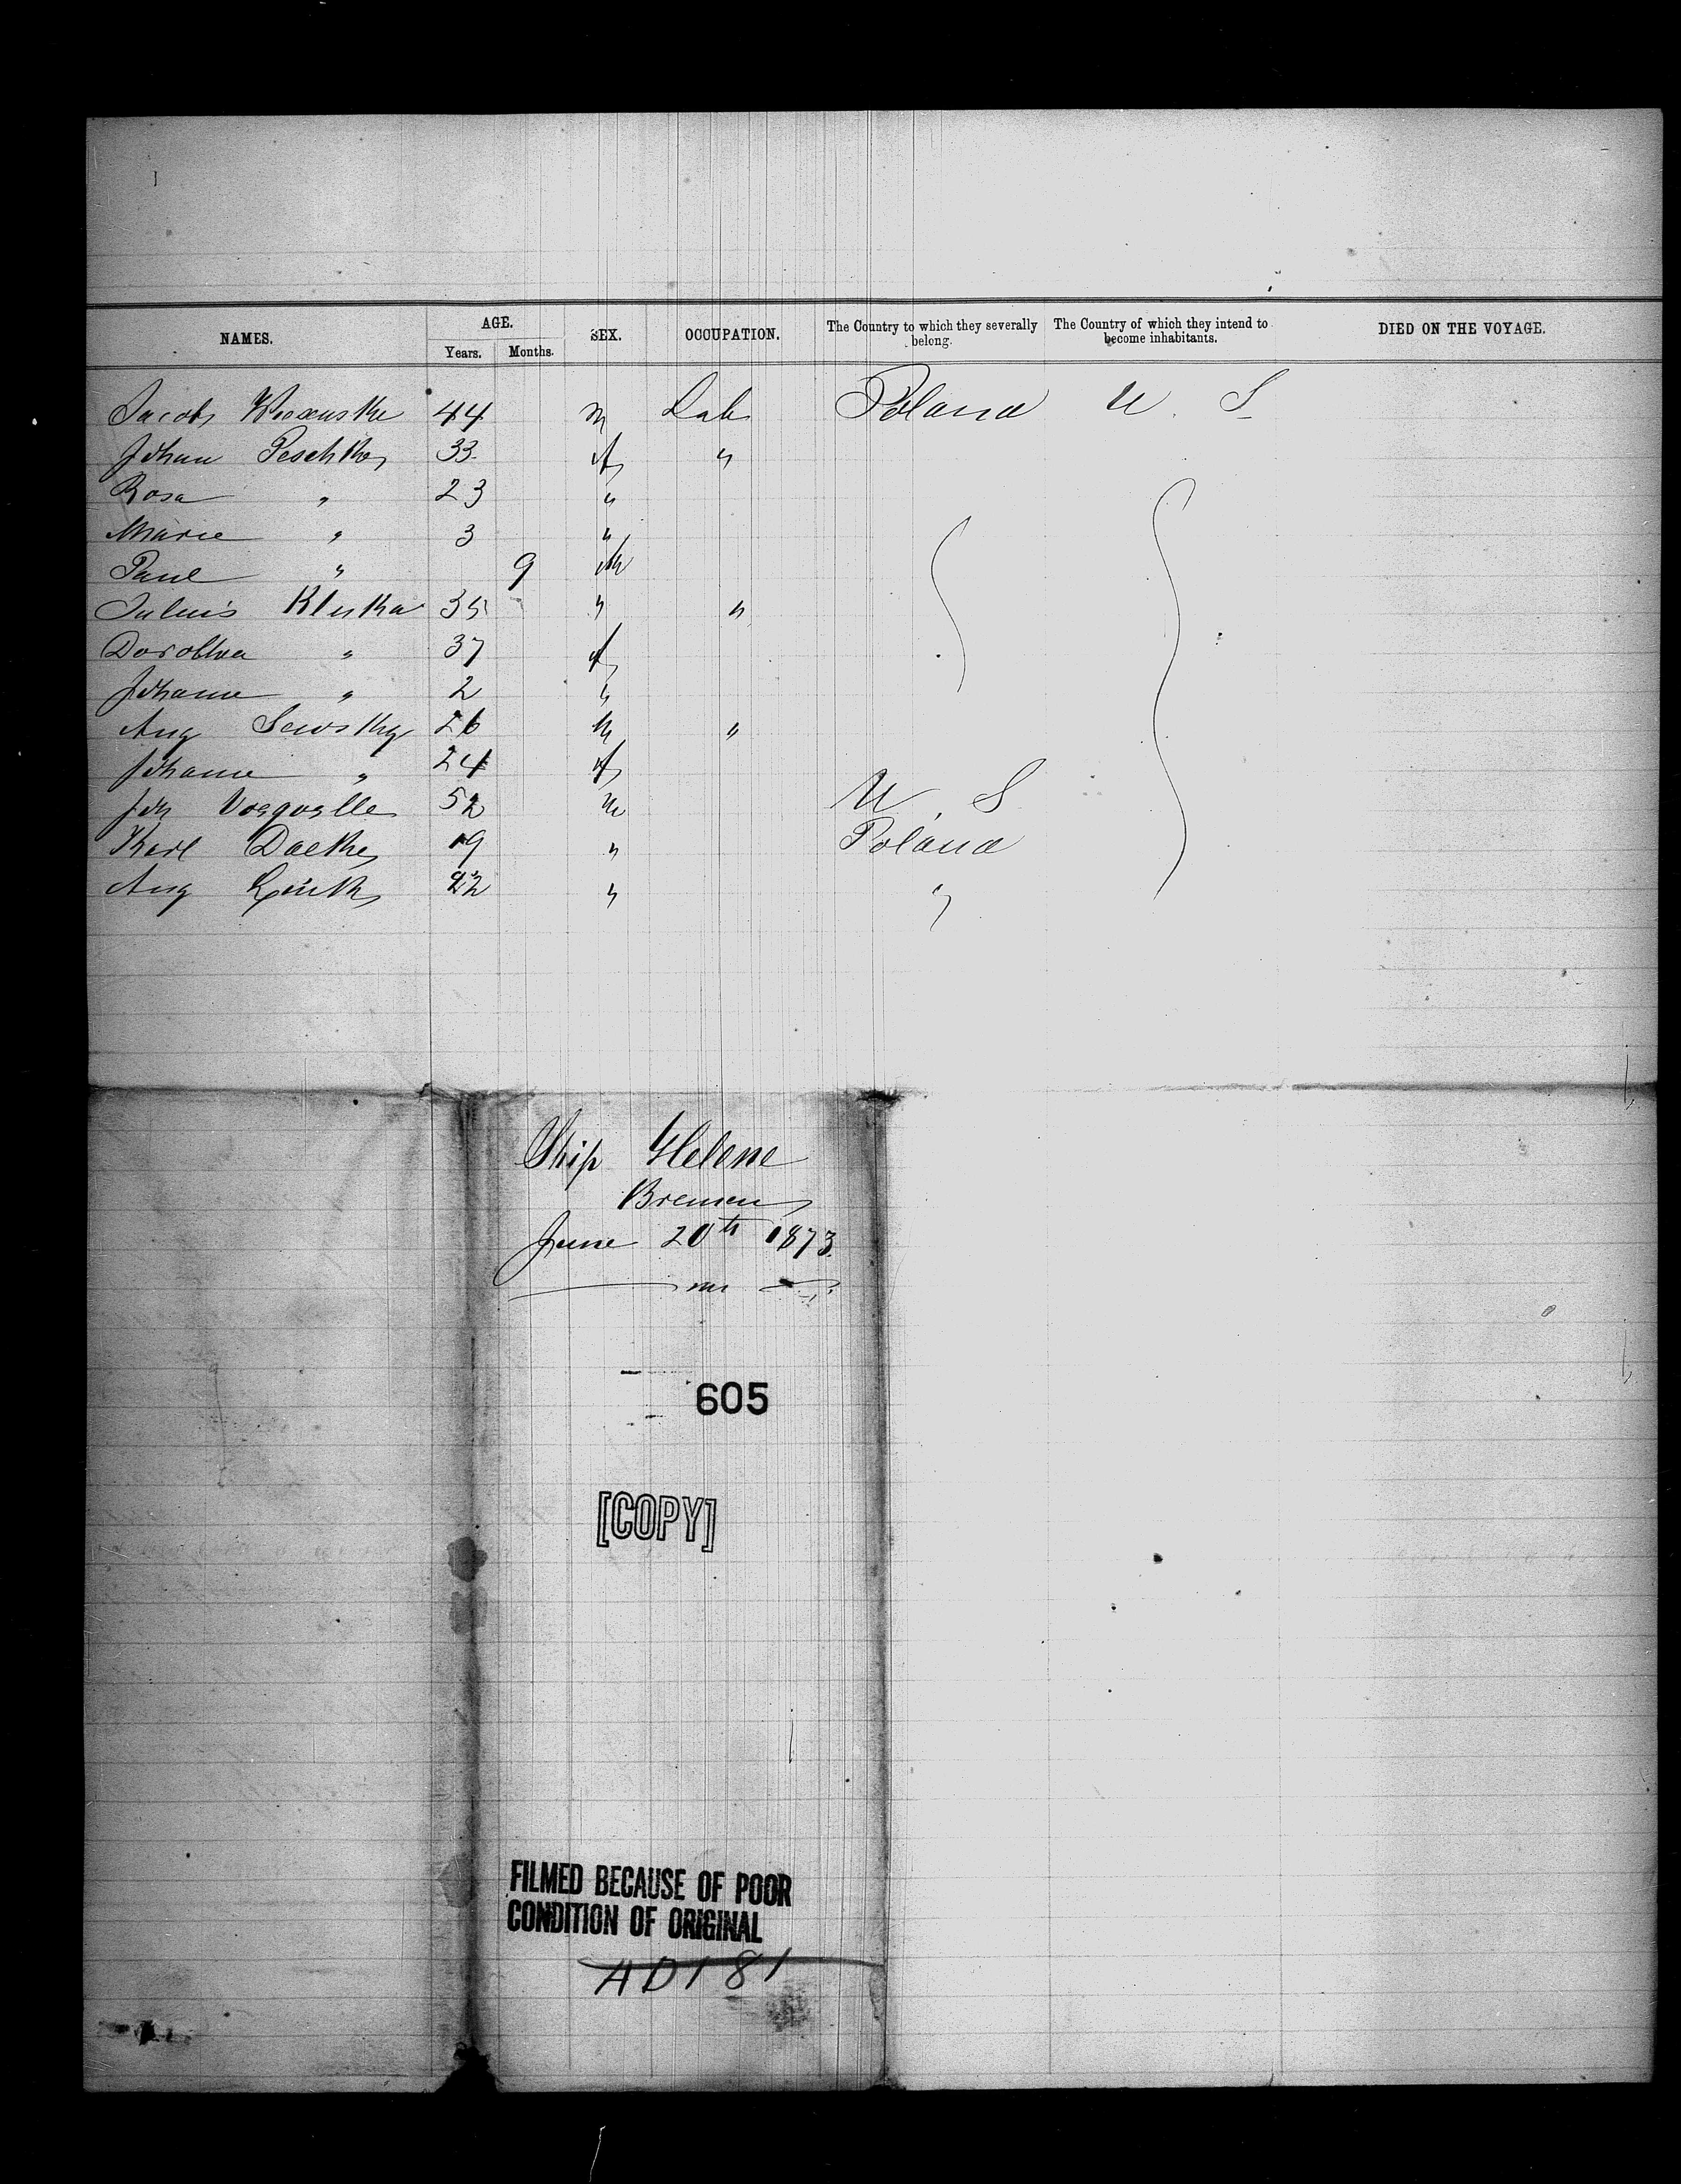 NAMES. AGE. SEX. OCCUPATION. The Country to which they severally belong. The Country of which they intend to become inhabitants. DIED ON THE VOYAGE.
Years. Months.
Jacob 44 m Lab Poland U. S
Johan Peschke 33 f "
Rosa " 23 "
Marie " 3 "
Paul " 9 m
Julius Kluka 35 " "
Dorothea " 37 f
Johanne " 2 "
Aug Sewsky 26 m "
Johanne " 24 f
Joh 52 m U. S
Karl Daeke 19 " Poland
Aug 22 " "
Ship Helene
Bremen
June 20th 1873.
605
[COPY]
FILMED BECAUSE OF POOR
CONDITION OF ORIGINAL
AD181